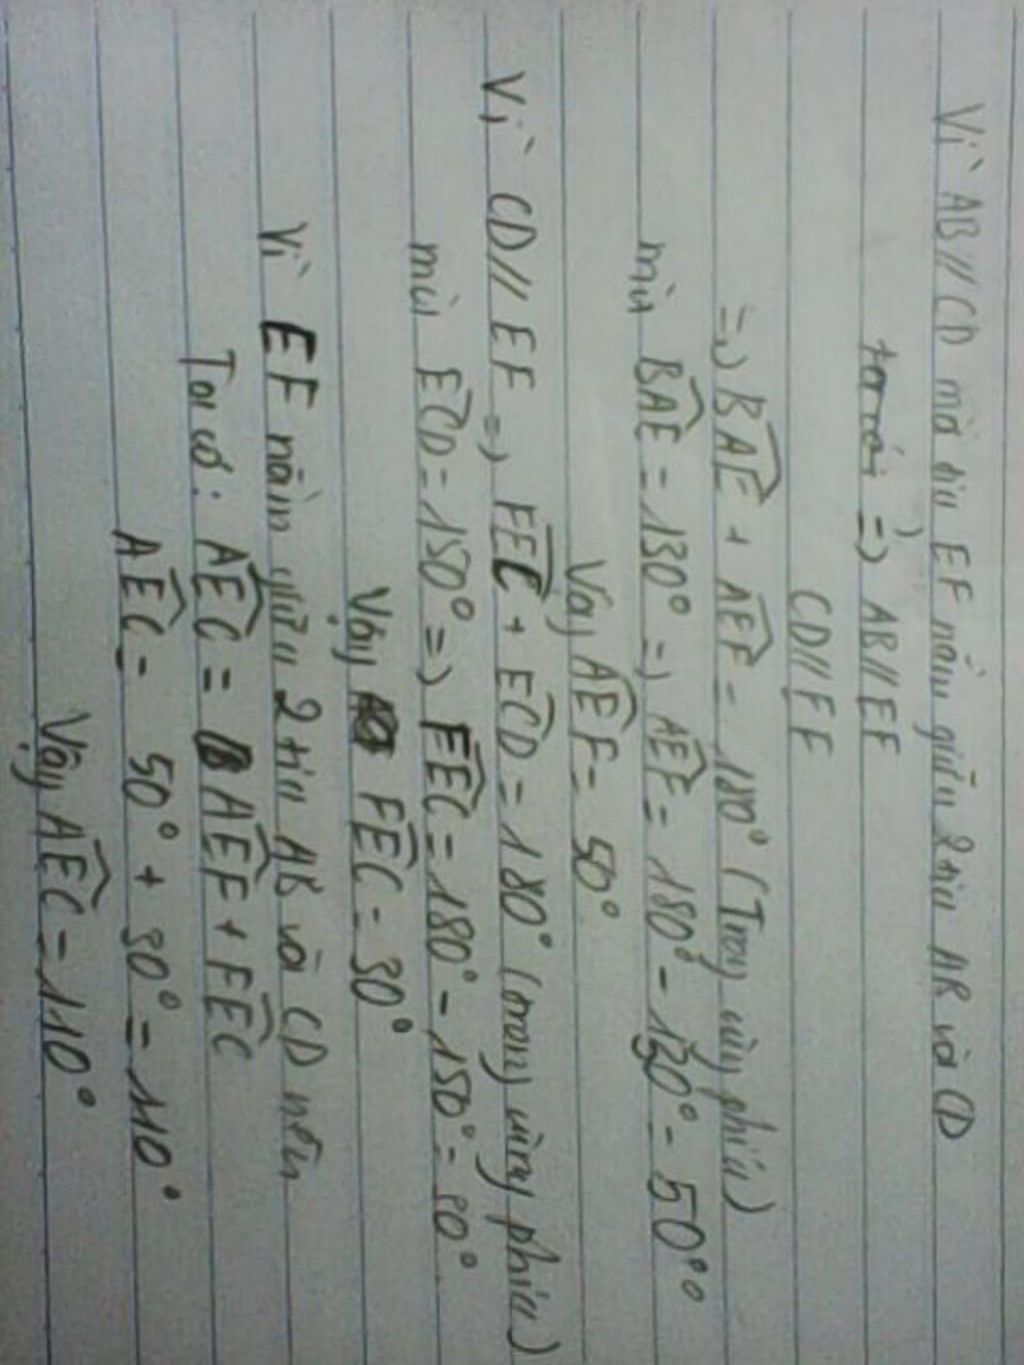 Vì AB//CD mà tia EF nằm giữa 2 tia AB và CD
=> AB//EF
CD//EF
=> BAE + AEF = 180° (Trong cùng phía)
mà BAE = 130° => AEF = 180° - 130° = 50°
Vậy AEF = 50°
Vì CD//EF => FEC + ECD = 180° (trong cùng phía)
mà ECD = 150° => FEC = 180° - 150° = 30°
Vậy FEC = 30°
Vì EF nằm giữa 2 tia AB và CD nên
Ta có: AEC = AEF + FEC
AEC = 50° + 30° = 110°
Vậy AEC = 110°